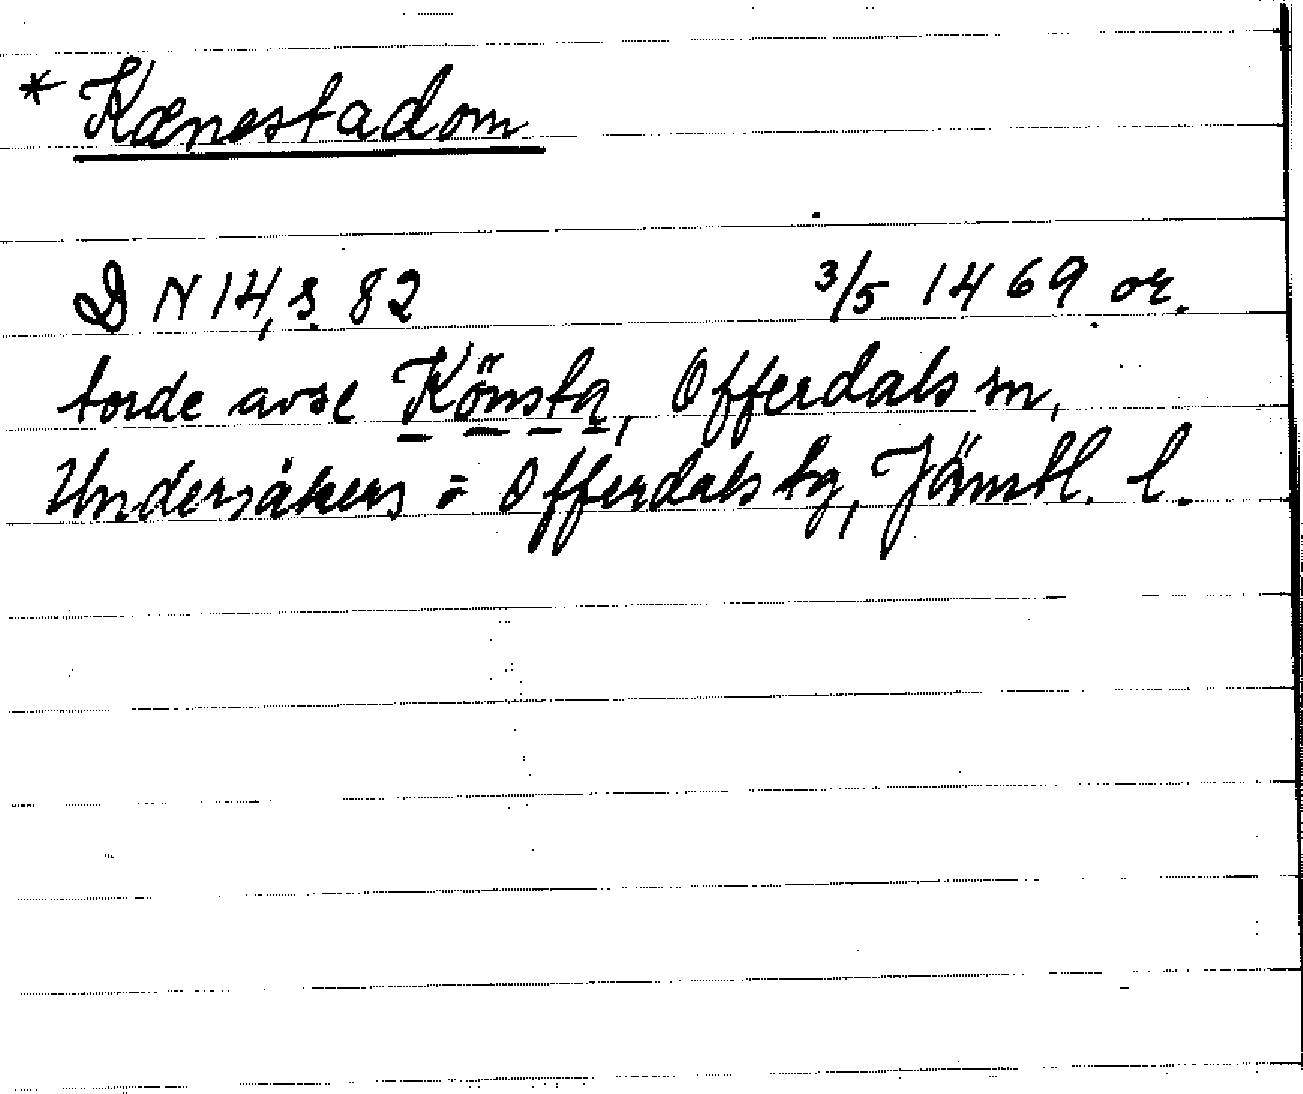 * Kænestadom
DN 14, s. 82 3/5 1469 or.
torde avse Könsta, Offerdals sn,
Undersåkers o Offerdals tg, Jämtl. l.